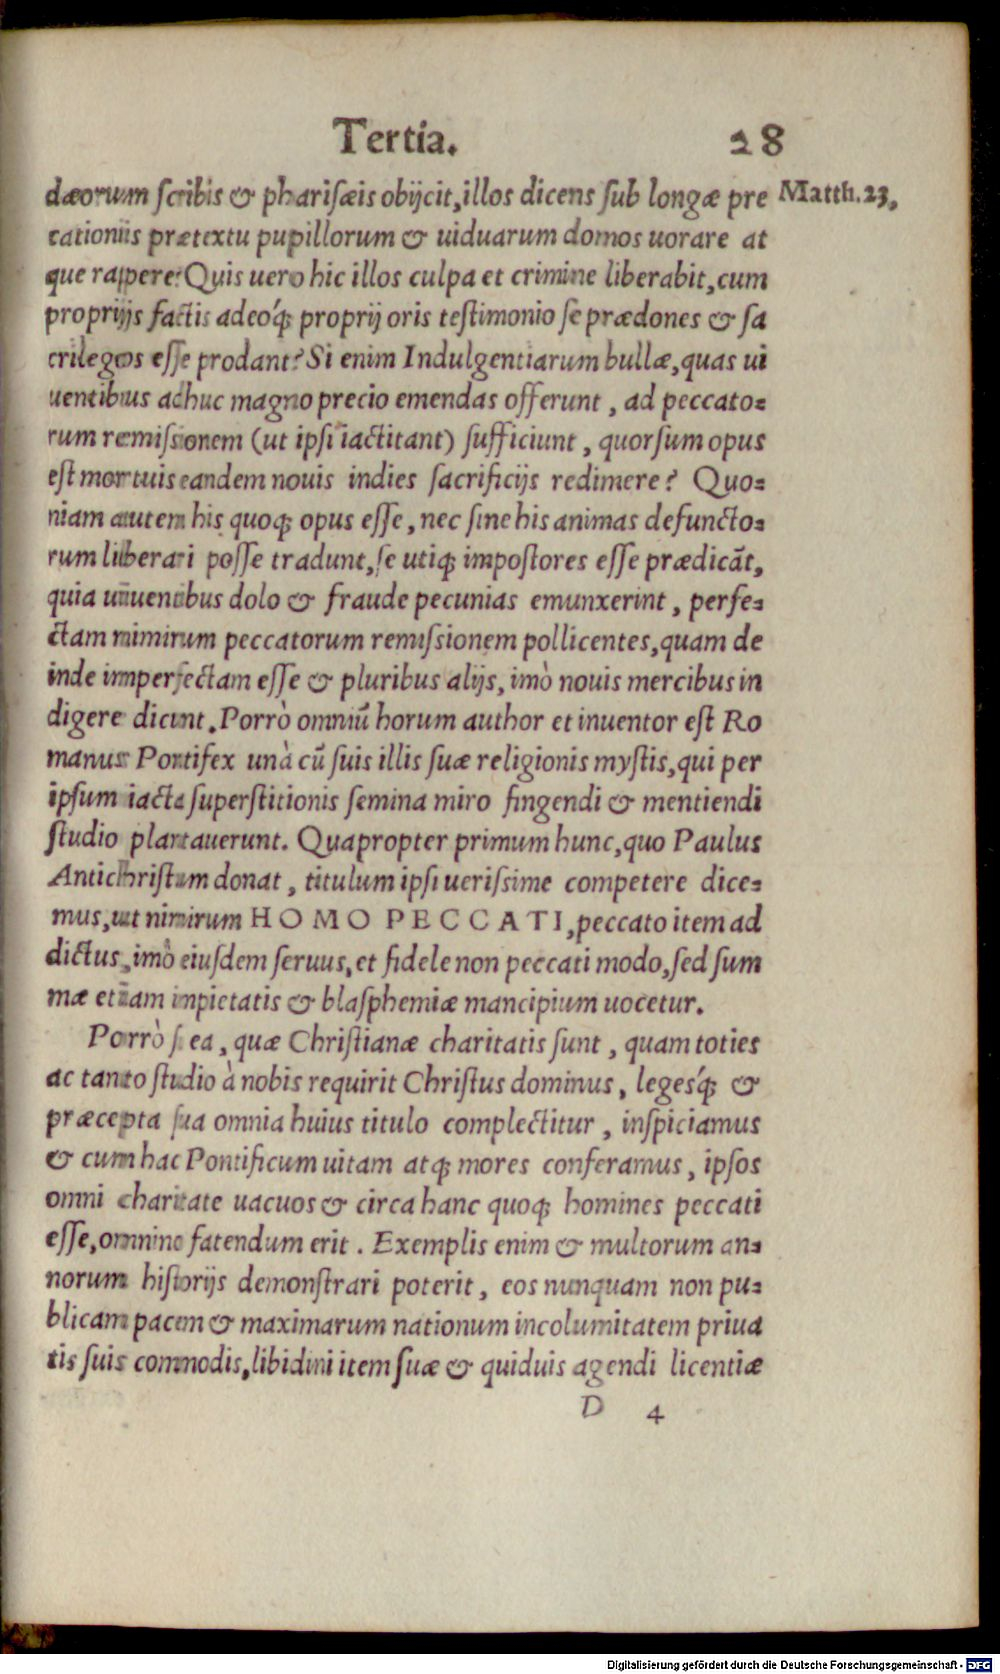 Tertia. 28
dæorum scribis & pharisæis obijcit, illos dicens sub longæ pre Matth. 23.
cationis prætextu pupillorum & uiduarum domos uorare at
que rapere. Quis uero hic illos culpa et crimine liberabit, cum
proprijs factis adeoq́; proprij oris testimonio se prædones & sa
crilegos esse prodant? Si enim Indulgentiarum bullæ, quas ui
uentibus adhuc magno precio emendas offerunt, ad peccato=
rum remissionem (ut ipsi iactitant) sufficiunt, quorsum opus
est mortuis eandem nouis indies sacrificijs redimere? Quo=
niam autem his quoq; opus esse, nec sine his animas defuncto=
rum liberari posse tradunt, se utiq; impostores esse prædicāt,
quia uiuentibus dolo & fraude pecunias emunxerint, perfe=
ctam nimirum peccatorum remissionem pollicentes, quam de
inde imperfectam esse & pluribus alijs, imò nouis mercibus in
digere dicunt. Porrò omniū horum author et inuentor est Ro
manus Pontifex unà cū suis illis suæ religionis mystis, qui per
ipsum iacta superstitionis semina miro fingendi & mentiendi
studio plantauerunt. Quapropter primum hunc, quo Paulus
Antichristum donat, titulum ipsi uerissime competere dice=
mus, ut nimirum HOMO PECCATI, peccato item ad
dictus, imò eiusdem seruus, et fidele non peccati modo, sed sum
mæ etiam impietatis & blasphemiæ mancipium uocetur.
Porrò si ea, quæ Christianæ charitatis sunt, quam toties
ac tanto studio à nobis requirit Christus dominus, legesq́; &
præcepta sua omnia huius titulo complectitur, inspiciamus
& cum hac Pontificum uitam atq; mores conferamus, ipsos
omni charitate uacuos & circa hanc quoq; homines peccati
esse, omnino fatendum erit. Exemplis enim & multorum an=
norum historijs demonstrari poterit, eos nunquam non pu=
blicam pacem & maximarum nationum incolumitatem priua
tis suis commodis, libidini item suæ & quiduis agendi licentiæ
D 4
Digitalisierung gefördert durch die Deutsche Forschungsgemeinschaft - DFG